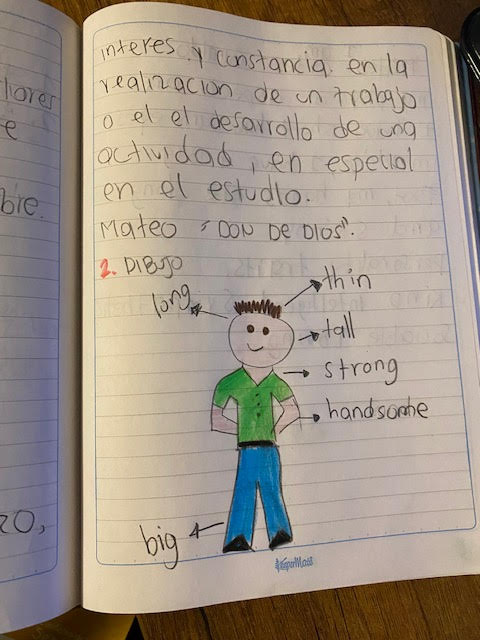 interes y constancia en la
realización de un trabajo
o el el desarrollo de una
actividad, en especial
en el estudio.
Mateo "DON DE DIOS".
2. DIBUJO
thin
long
tall
strong
handsome
big
liores
e
bre.
zo,